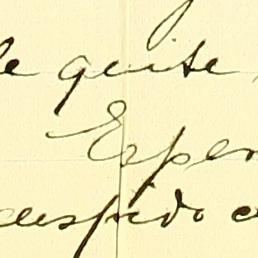 le quite
Esper
despido a